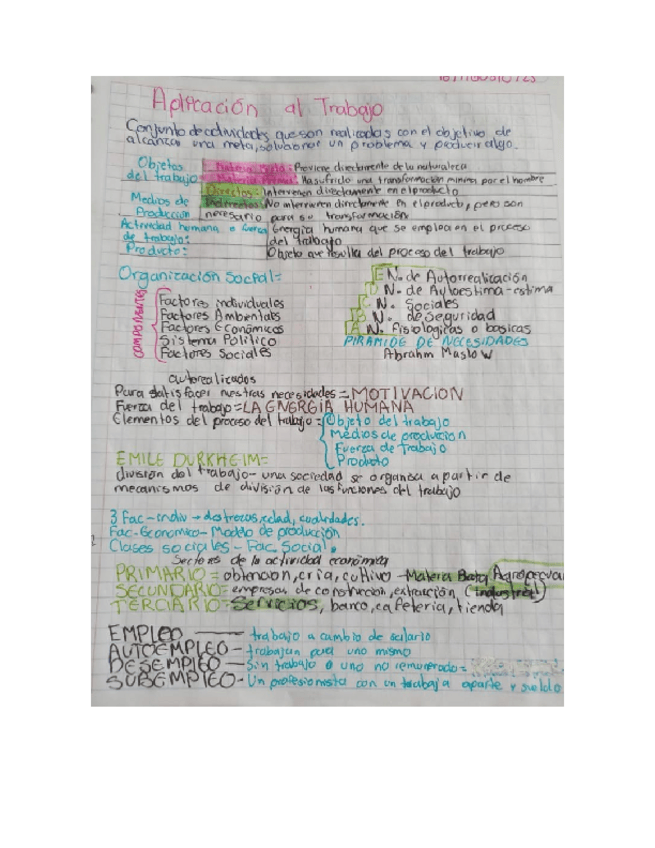 Aplicación al Trabajo
Conjunto de actividades que son realizadas con el objetivo de
alcanzar una meta, solucionar un problema y producir algo.
Objetos del trabajo
Materia Bruta: Proviene directamente de la naturaleza
Materia Prima: Ha sufrido una transformación minima por el hombre
Medios de Producción
Directos: Intervienen directamente en el producto
Indirectos: No intervienen directamente en el producto, pero son
necesario para su transformación
Actividad humana o fuerza de trabajo: Energia humana que se emplea en el proceso
del trabajo
Producto: Objeto que resulta del proceso del trabajo
Organización Social=
COMPONENTES
Factores individuales
Factores Ambientales
Factores Económicos
Sistema Politico
Factores Sociales
E N. de Autorrealización
D N. de Autoestima-estima
C N. Sociales
B N. de seguridad
A N. Fisiologicas o basicas
PIRAMIDE DE NECESIDADES
Abrahm Maslow
autorealizados
Para satisfacer nuestras necesidades = MOTIVACION
Fuerza del trabajo = LA ENERGIA HUMANA
Elementos del proceso del trabajo =
Objeto del trabajo
Medios de produccion
Fuerza de Trabajo
Producto
EMILE DURKHEIM=
division del trabajo- una sociedad se organisa a partir de
mecanismos de división de las funciones del trabajo
3 Fac-indiv → destrezas, edad, cualidades.
Fac-Economico- Modelo de producción
Clases sociales - Fac. Social.
Sectores de la actividad económica
PRIMARIO = obtencion, cria, cultivo - Materia Bruta
SECUNDARIO = empresas de construcion, extracción, (industrial)
TERCIARIO = Servicios, banco, cafeteria, tienda
EMPLEO — trabajo a cambio de salario
AUTOEMPLEO - trabajan para uno mismo
DESEMPLEO - Sin trabajo o uno no remunerado=
SUBEMPLEO- Un profesionista con un trabajo aparte y sueldo